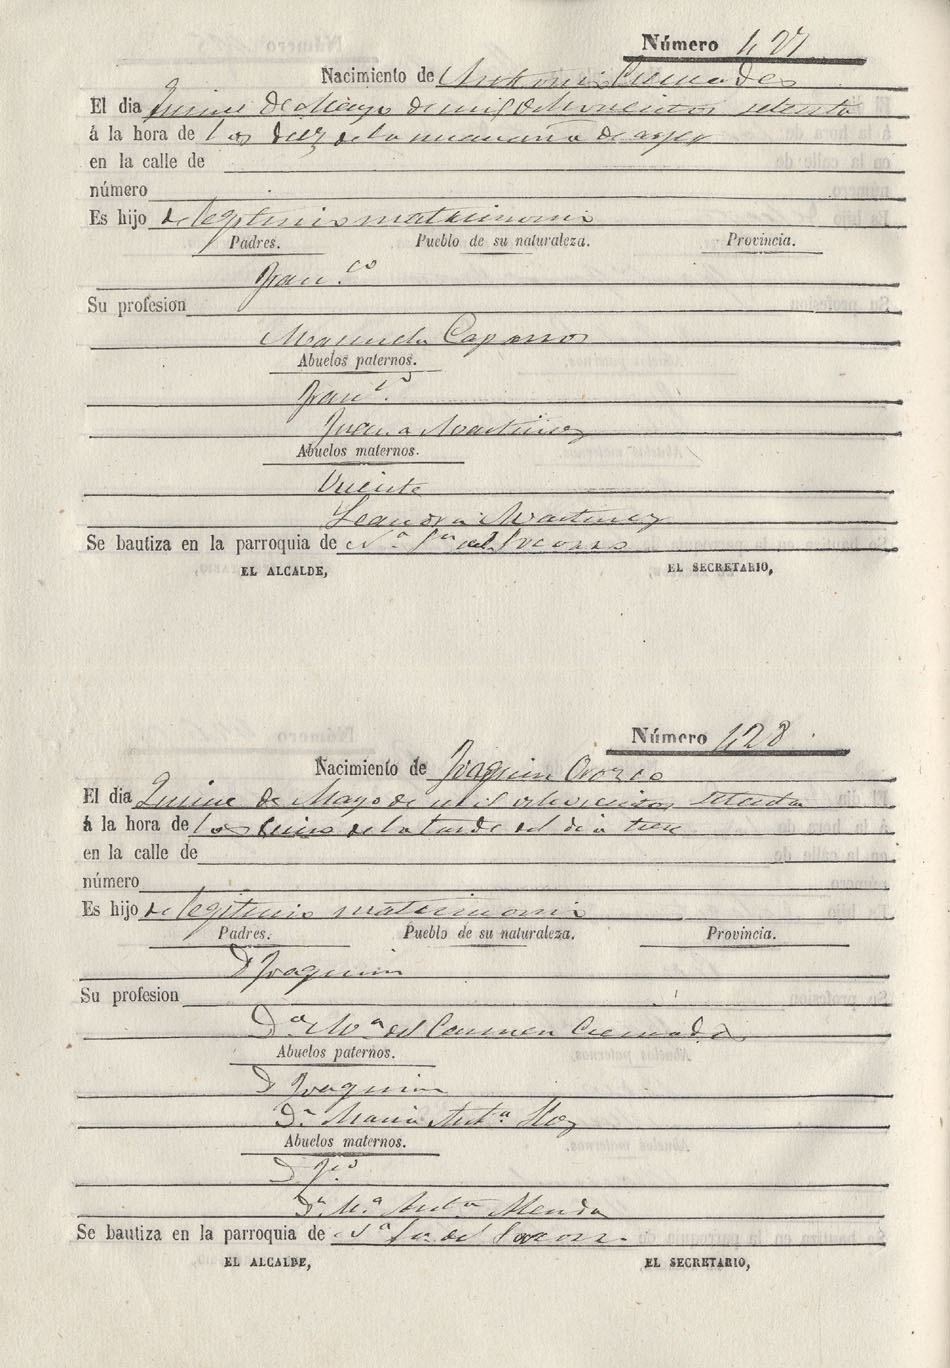 Número 427
Nacimiento de Antonio Cremades
El dia Quince de Mayo de mil ochocientos setenta
á la hora de las diez de la mañana de ayer
en la calle de
número
Es hijo de legitimo matrimonio
Padres. Pueblo de su naturaleza. Provincia.
Fran.co
Su profesion
Manuela Caparros
Abuelos paternos.
Fran.co
Juana Martinez
Abuelos maternos.
Vicente
Leandra Martinez
Se bautiza en la parroquia de N.a Sra del Socorro
EL ALCALDE, EL SECRETARIO,
Número 428
Nacimiento de Joaquin Orozco
El dia Quince de Mayo de mil ochocientos setenta
á la hora de las cinco de la tarde del dia trece
en la calle de
número
Es hijo de legitimo matrimonio
Padres. Pueblo de su naturaleza. Provincia.
D Joaquin
Su profesion
D.a M.a del Carmen Cremades
Abuelos paternos.
D Joaquin
D.a Maria Ant.a
Abuelos maternos.
D
D.a M.a Ant.a
Se bautiza en la parroquia de N.a Sra del Socorro
EL ALCALDE, EL SECRETARIO,